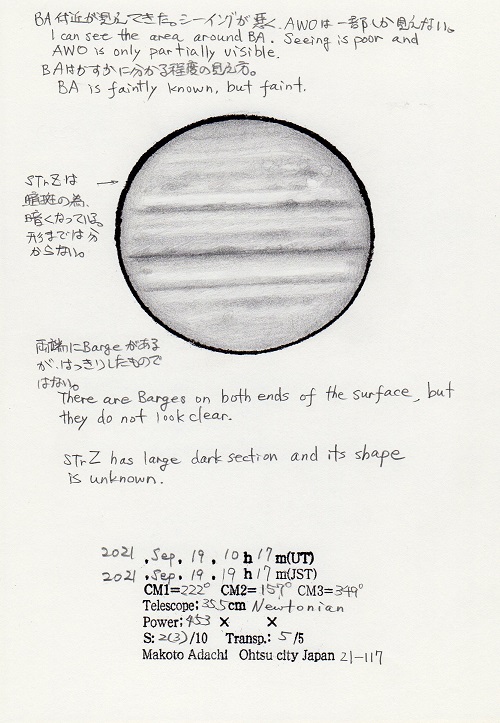 BA付近が見えてきた。シーイングが悪く、AWOは一部しか見えない。
I can see the area around BA. Seeing is poor and
AWO is only partially visible.
BAはかすかに分かる程度の見え方。
BA is faintly known, but faint.
STrZは
暗斑の為、
暗くなっている。
形までは分
からない。
両端にBargeがある
が、はっきりしたもので
はない。
There are Barges on both ends of the surface, but
they do not look clear.
STrZ has large dark section and its shape
is unknown.
2021 . Sep . 19 . 10 h 17 m(UT)
2021 . Sep . 19 . 19 h 17 m(JST)
CM1=222° CM2= 157° CM3=349°
Telescope: 35.5cm Newtonian
Power: 453 × ×
S: 2(3)/10 Transp.: 5/5
Makoto Adachi Ohtsu city Japan 21-117